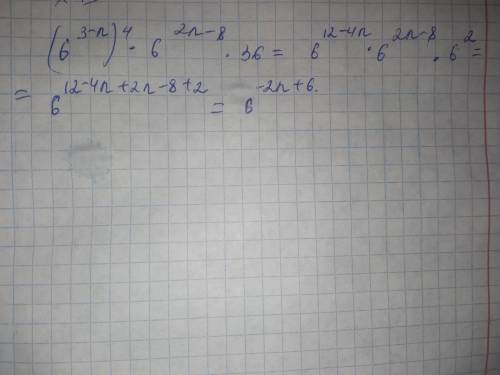 (6^{3-n})^4 · 6^{2n-8} · 36 = 6^{12-4n} · 6^{2n-8} · 6^2 =
= 6^{12-4n+2n-8+2} = 6^{-2n+6}.